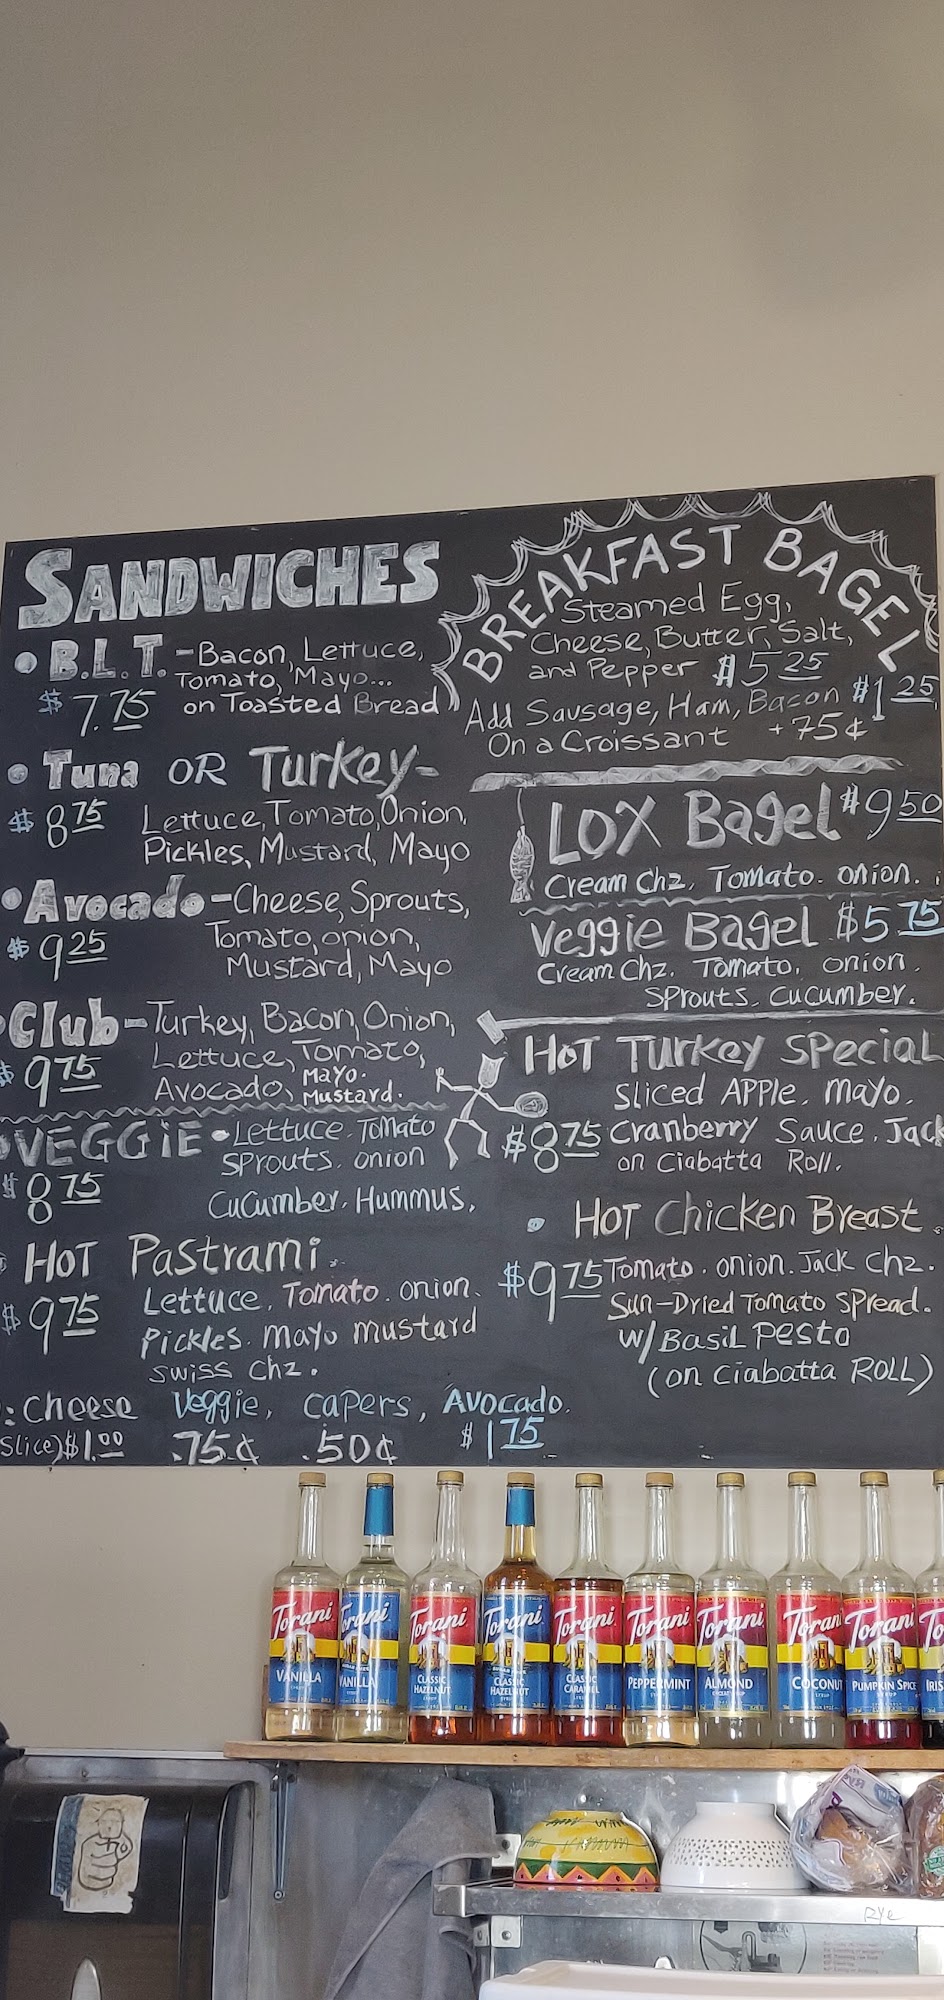 SANDWICHES
• B.L.T. - Bacon, Lettuce,
Tomato, Mayo...
$7.75 on Toasted Bread
• Tuna OR Turkey-
$8.75 Lettuce, Tomato, Onion,
Pickles, Mustard, Mayo
• Avocado - Cheese, Sprouts,
$9.25 Tomato, onion,
Mustard, Mayo
Club - Turkey, Bacon, Onion,
$9.75 Lettuce, Tomato,
Avocado, Mayo.
Mustard.
• VEGGIE • Lettuce. Tomato
Sprouts. onion
$8.75 CuCumber. Hummus.
HOT Pastrami.
$9.75 Lettuce. Tomato. onion.
Pickles. mayo mustard
swiss chz.
: cheese Veggie, capers, Avocado.
Slice) $1.00 .75¢ .50¢ $1.75
BREAKFAST BAGEL
Steamed Egg,
Cheese, Butter, Salt,
and Pepper $5.25
Add Sausage, Ham, Bacon $1.25
On a Croissant +75¢
LOX Bagel $9.50
Cream Chz. Tomato. onion.
Veggie Bagel $5.75
Cream Chz. Tomato. onion.
Sprouts. cucumber.
HOT TURKEY SPecial
Sliced APPLE. mayo.
$8.75 Cranberry Sauce. Jack
on Ciabatta Roll.
• HOT Chicken Breast.
$9.75 Tomato. onion. Jack chz.
Sun-Dried Tomato SPread.
w/ Basil Pesto
(on Ciabatta ROLL)
Torani
VANILLA
Torani
VANILLA
Torani
CLASSIC
HAZELNUT
Torani
CLASSIC
HAZELNUT
Torani
CLASSIC
CARAMEL
Torani
PEPPERMINT
Torani
ALMOND
Torani
COCONUT
Torani
PUMPKIN SPICE
To
IRIS
Rye